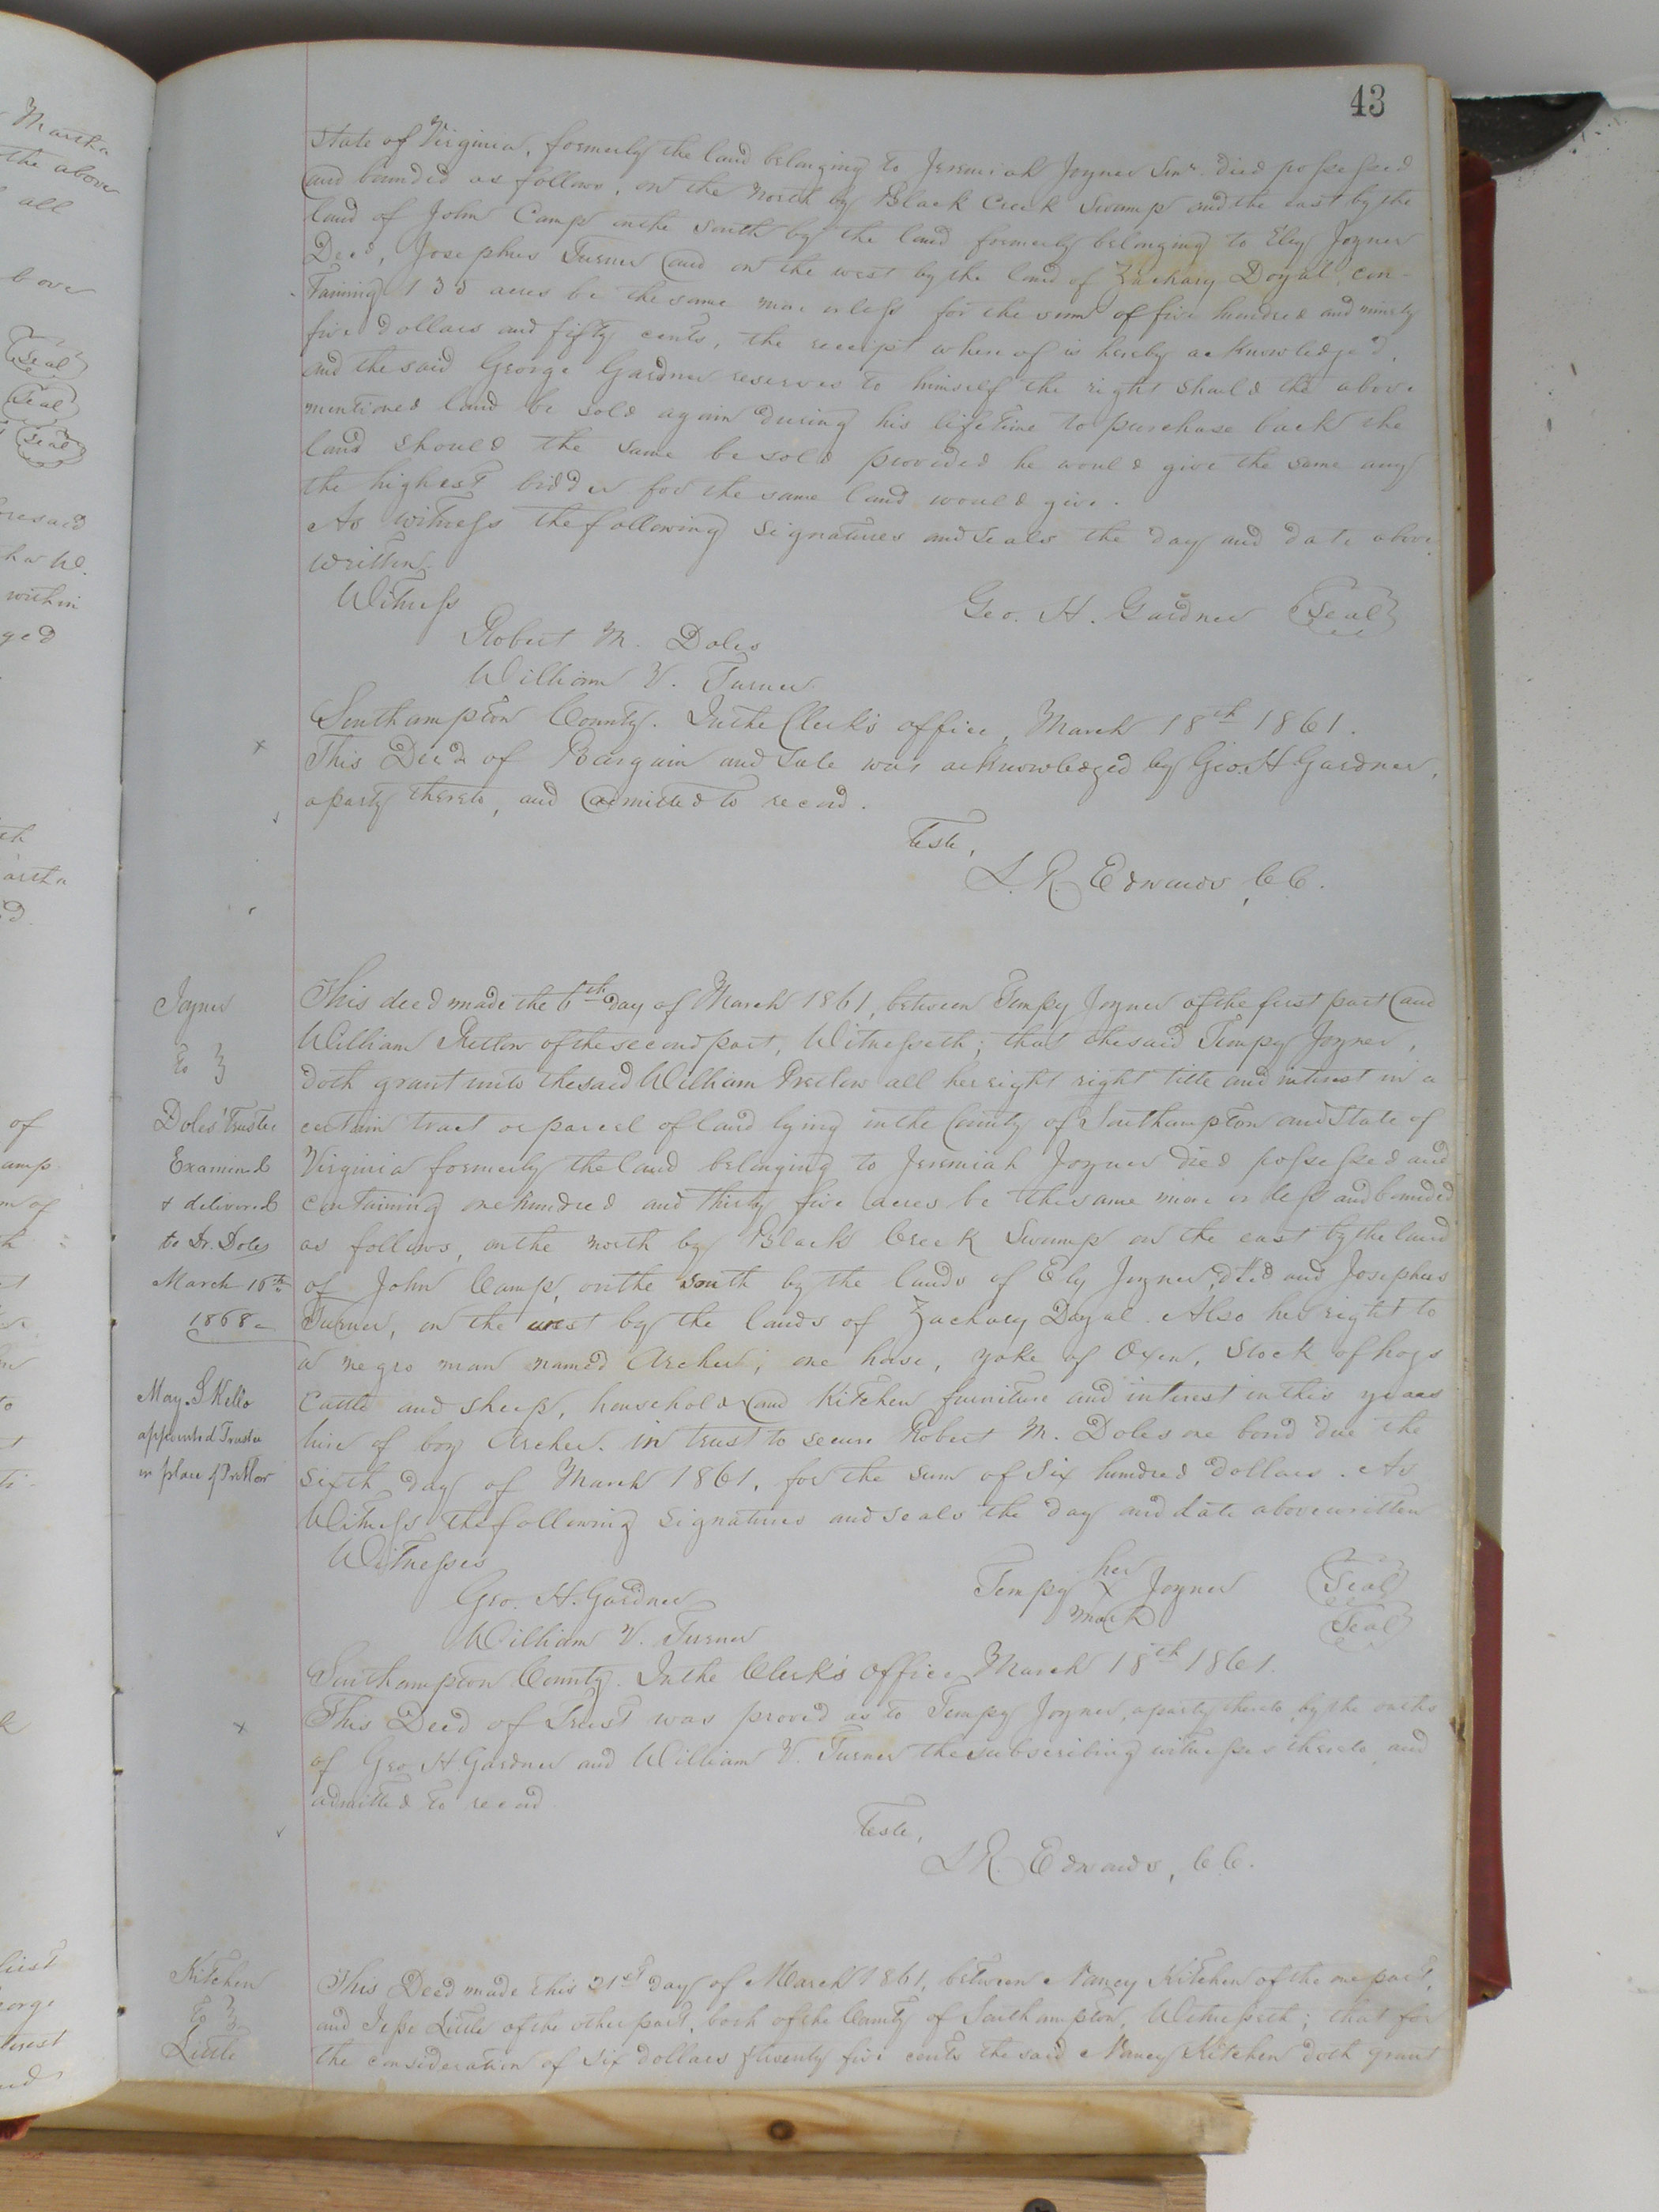 43
State of Virginia, formerly the land belonging to Jeremiah Joyner Senr. died possessed
and bounded as follows, on the North by Black Creek Swamp and the east by the
land of John Camp on the South by the land formerly belonging to Eley Joyner
Decd, Josephus Turner and on the west by the land of Zachary Doyal, con-
taining 135 acres be the same more or less for the sum of five hundred and ninety
five dollars and fifty cents, the receipt whereof is hereby acknowledged,
and the said George Gardner reserves to himself the right should the above
mentioned land be sold again during his lifetime to purchase back the
land should the same be sold provided he would give the same any
the highest bidder for the same land would give.
As witness the following signatures and seals the day and date above
written
Witness
Geo. H. Gardner Seal
Robert M. Doles
William V. Turner
Southampton County. In the Clerk's office, March 18th 1861.
This Deed of Bargain and Sale was acknowledged by Geo. H Gardner,
a party thereto, and admitted to record.
Teste,
L. R. Edwards, C C.
Joyner
To
Doles' Trustee
Examined
& delivered
to Dr. Doles
March 16th
1868
May. S Kello
appointed Trustee
in place of Pretlow
This deed made the 6th day of March 1861, between Tempy Joyner of the first part and
William Pretlow of the second part, Witnesseth; that the said Tempy Joyner,
doth grant unto the said William Pretlow all her right right title and interest in a
certain tract or parcel of land lying in the County of Southampton and State of
Virginia formerly the land belonging to Jeremiah Joyner died possessed and
containing one hundred and thirty five acres be the same more or less and bounded
as follows, on the north by Black Creek Swamp on the east by the land
of John Camp, on the south by the lands of Ely Joyner, and Josephus
Turner, on the west by the lands of Zachary Doyal. Also her right to
a negro man named Archer; one horse, yoke of Oxen, Stock of hogs
Cattle and sheep, household and Kitchen furniture and interest in this years
hire of boy Archer. in trust to secure Robert M. Doles one bond due the
sixth day of March 1861, for the sum of Six hundred dollars. As
Witness the following signatures and seals the day and date above written
Witnesses
her
Tempy X Joyner Seal
mark
Geo. H. Gardner
Seal
William V. Turner
Southampton County. In the Clerk's Office, March 18th 1861.
This Deed of Trust was proved as to Tempy Joyner, a party thereto, by the oaths
of Geo H Gardner and William V. Turner the subscribing witnesses thereto, and
admitted to record
Teste,
L R. Edwards, C C.
Kitchen
To
Little
This Deed made this 21st day of March 1861, between Nancy Kitchen of the one part,
and Jesse Little of the other part, both of the County of Southampton, Witnesseth; that for
the consideration of six dollars & twenty five cents the said Nancy Kitchen doth grant